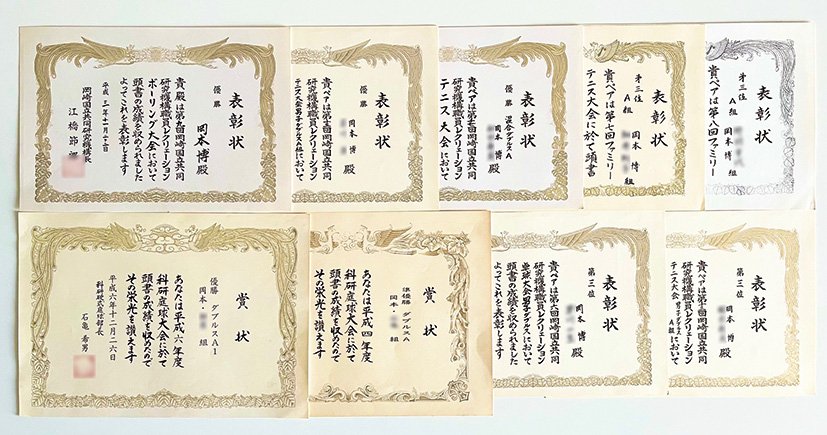 表彰状
優勝
岡本博殿
貴殿は第九回岡崎国立共同
研究機構職員レクリェーション
ボーリング大会において
頭書の成績を収められました
よってこれを表彰します
平成
岡崎国立共同研究機構長
江橋節郎
表彰状
優勝
博
殿
研究機構職員レクリェーション
テニス大会男子ダブルスA組において
表彰状
優勝
混合ダブルスA
岡本 博
殿
研究機構職員レクリェーション
テニス大会において
表彰状
オ三位
A組
岡本 博
組
貴ペアは第七回ファミリー
テニス大会に於て頭書
表彰状
オ三位
A組
岡本 博
組
貴ペアは第八回ファミリー
賞状
優勝・ダブルスA1
岡本・
組
あなたは平成六年度
科研庭球大会に於て
頭書の成績を収めたので
その栄光を讃えます
平成六年十二月二六日
科研硬式庭球部長
石亀希男
賞状
準優勝 ダブルスA
岡本・
組
あなたは平成四年度
科研庭球大会に於て
頭書の成績を収めたので
その栄光を讃えます
表彰状
第三位
岡本 博
殿
貴ペアは第六回岡崎国立共同
研究機構職員レクリェーション
卓球大会男子ダブルスにおいて
頭書の成績を収められました
よってこれを表彰します
表彰状
第三位
岡本 博
殿
貴ペアは第十回岡崎国立共同
研究機構職員レクリェーション
テニス大会男子ダブルスA組において